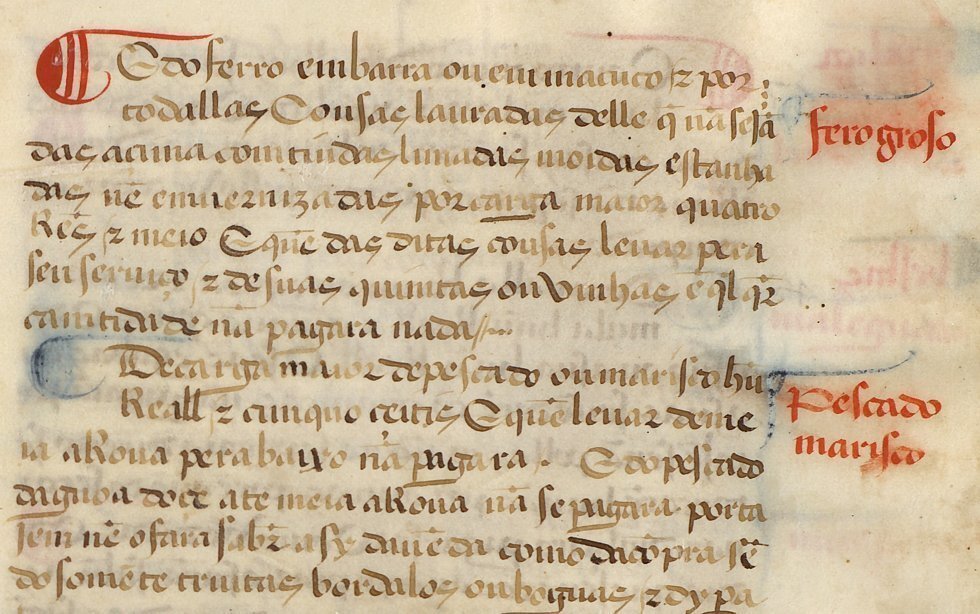 E do ferro em barra ou em maçuco ⁊ por
todallas Cousas lauradas delle q̃ nã sejã
das açima comtiudas limadas moidas estanha
das nẽ emuernizadas por carga maior quatro
Reẽs ⁊ meio E quẽ das ditas cousas leuar pera
seu seruiço ⁊ de suas quimtas ou vinhas ẽ q̃l q̃r
camtidade nã pagara nada
fero groso
De carga maior de pescado ou marisco hũ
Reall ⁊ cimquo ceitis E quẽ leuar de me
ia aRoua pera baixo nã pagara. E do pescado
daguoa doce ate meia aRoua nã se pagara porta
Jem nẽ o farã sabr̃ asy da uẽda como da cõpra sẽ
do somẽte truitas bordalos ou boguas ⁊ dy pa
Pescado
marisco